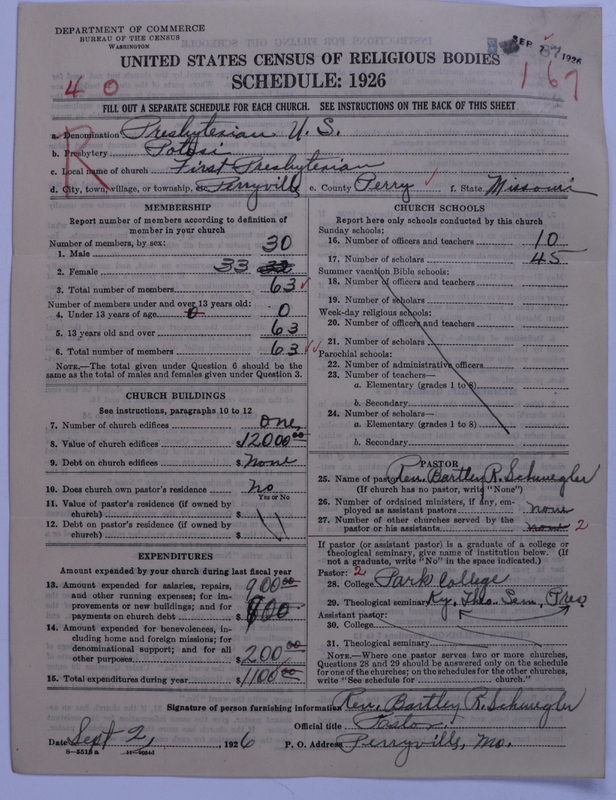 DEPARTMENT OF COMMERCE
BUREAU OF THE CENSUS
WASHINGTON
SEP 1926
UNITED STATES CENSUS OF RELIGIOUS BODIES
SCHEDULE: 1926
40
167
FILL OUT A SEPARATE SCHEDULE FOR EACH CHURCH. SEE INSTRUCTIONS ON THE BACK OF THIS SHEET
R
a. Denomination Presbyterian U. S.
b. Presbytery Potosi
c. Local name of church First Presbyterian
d. City, town, village, or township, Perryville e. County Perry f. State Missouri
MEMBERSHIP
Report number of members according to definition of member in your church
Number of members, by sex:
1. Male 30
2. Female 33
3. Total number of members 63
Number of members under and over 13 years old:
4. Under 13 years of age 0 0
5. 13 years old and over 63
6. Total number of members 63
NOTE.—The total given under Question 6 should be
same as the total of males and females given under Question 3.
CHURCH BUILDINGS
See instructions, paragraphs 10 to 12
7. Number of church edifices One
8. Value of church edifices $12000 00
9. Debt on church edifices $ None
10. Does church own pastor's residence No
Yes or No
11. Value of pastor's residence (if owned by
church) $
12. Debt on pastor's residence (if owned by
church) $
EXPENDITURES
Amount expended by your church during last fiscal year
13. Amount expended for salaries, repairs,
and other running expenses; for im-
provements or new buildings; and for
payments on church debt 900 00
$900
14. Amount expended for benevolences, in-
cluding home and foreign missions; for
denominational support; and for all
other purposes $200 00
15. Total expenditures during year $1100 00
CHURCH SCHOOLS
Report here only schools conducted by this church
Sunday schools:
16. Number of officers and teachers 10
17. Number of scholars 45
Summer vacation Bible schools:
18. Number of officers and teachers
19. Number of scholars
Week-day religious schools:
20. Number of officers and teachers
21. Number of scholars
Parochial schools:
22. Number of administrative officers
23. Number of teachers—
a. Elementary (grades 1 to 8)
b. Secondary
24. Number of scholars—
a. Elementary (grades 1 to 8)
b. Secondary
PASTOR
25. Name of pastor Rev. Bartley R. Schwegler
(If church has no pastor, write "None")
26. Number of ordained ministers, if any, em-
ployed as assistant pastors none
27. Number of other churches served by the
pastor or his assistants none 2
If pastor (or assistant pastor) is a graduate of a college or
theological seminary, give name of institution below. (If
not a graduate, write "No" in the space indicated.)
Pastor: 2
28. College Park College
29. Theological seminary Ky. Theo. Sem. Pres
Assistant pastor:
30. College
31. Theological seminary
NOTE.—Where one pastor serves two or more churches,
Questions 28 and 29 should be answered only on the schedule
for one of the churches; on the schedules for the other churches,
write "See schedule for church."
Signature of person furnishing information Rev. Bartley R. Schwegler
Official title Pastor
Date Sept 2, 1926 P. O. Address Perryville, Mo.
8—5513a